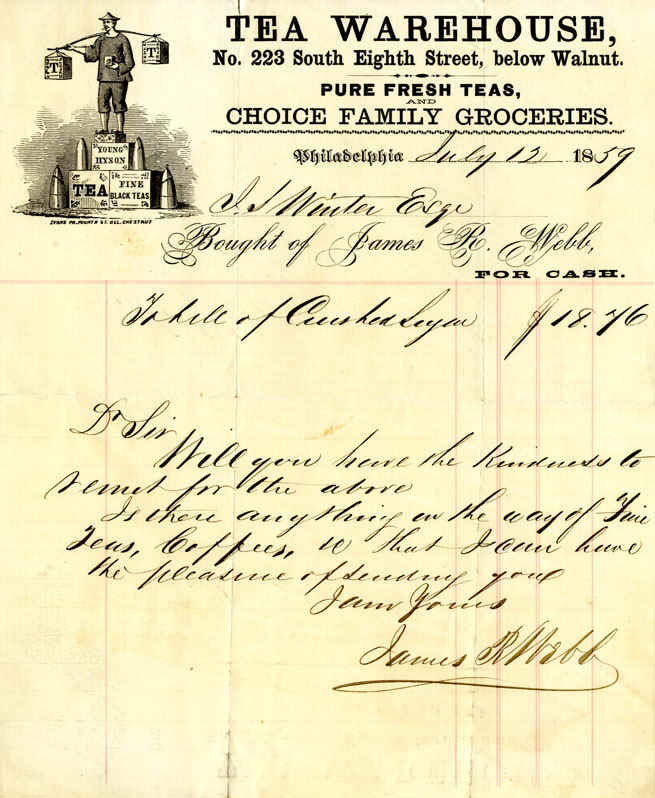 TEA WAREHOUSE,
No. 223 South Eighth Street, below Walnut.
PURE FRESH TEAS,
AND
CHOICE FAMILY GROCERIES.
T
T
YOUNG
HYSON
TEA
FINE
BLACK TEAS
EVANS PR. FOURTH ST. BEL. CHESTNUT
Philadelphia July 12 1859
J. S Winter Esqe
Bought of James R. Webb,
FOR CASH.
To bill of Crushed Sugar $18.76
Dr Sir
Will you have the kindness to
remit for the above
Is there anything in the way of Fine
Teas, Coffees, &c that I can have
the pleasure of sending you
I am Yours
James R Webb